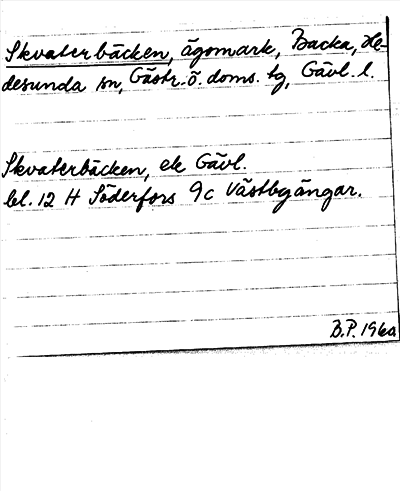 Skvaterbäcken, ägomark, Backa, He-
desunda sn, Gästr. ö. doms. tg, Gävl. l.
Skvaterbäcken, ek Gävl.
bl. 12 H Söderfors 9c Västbyggängar.
B.P. 1960